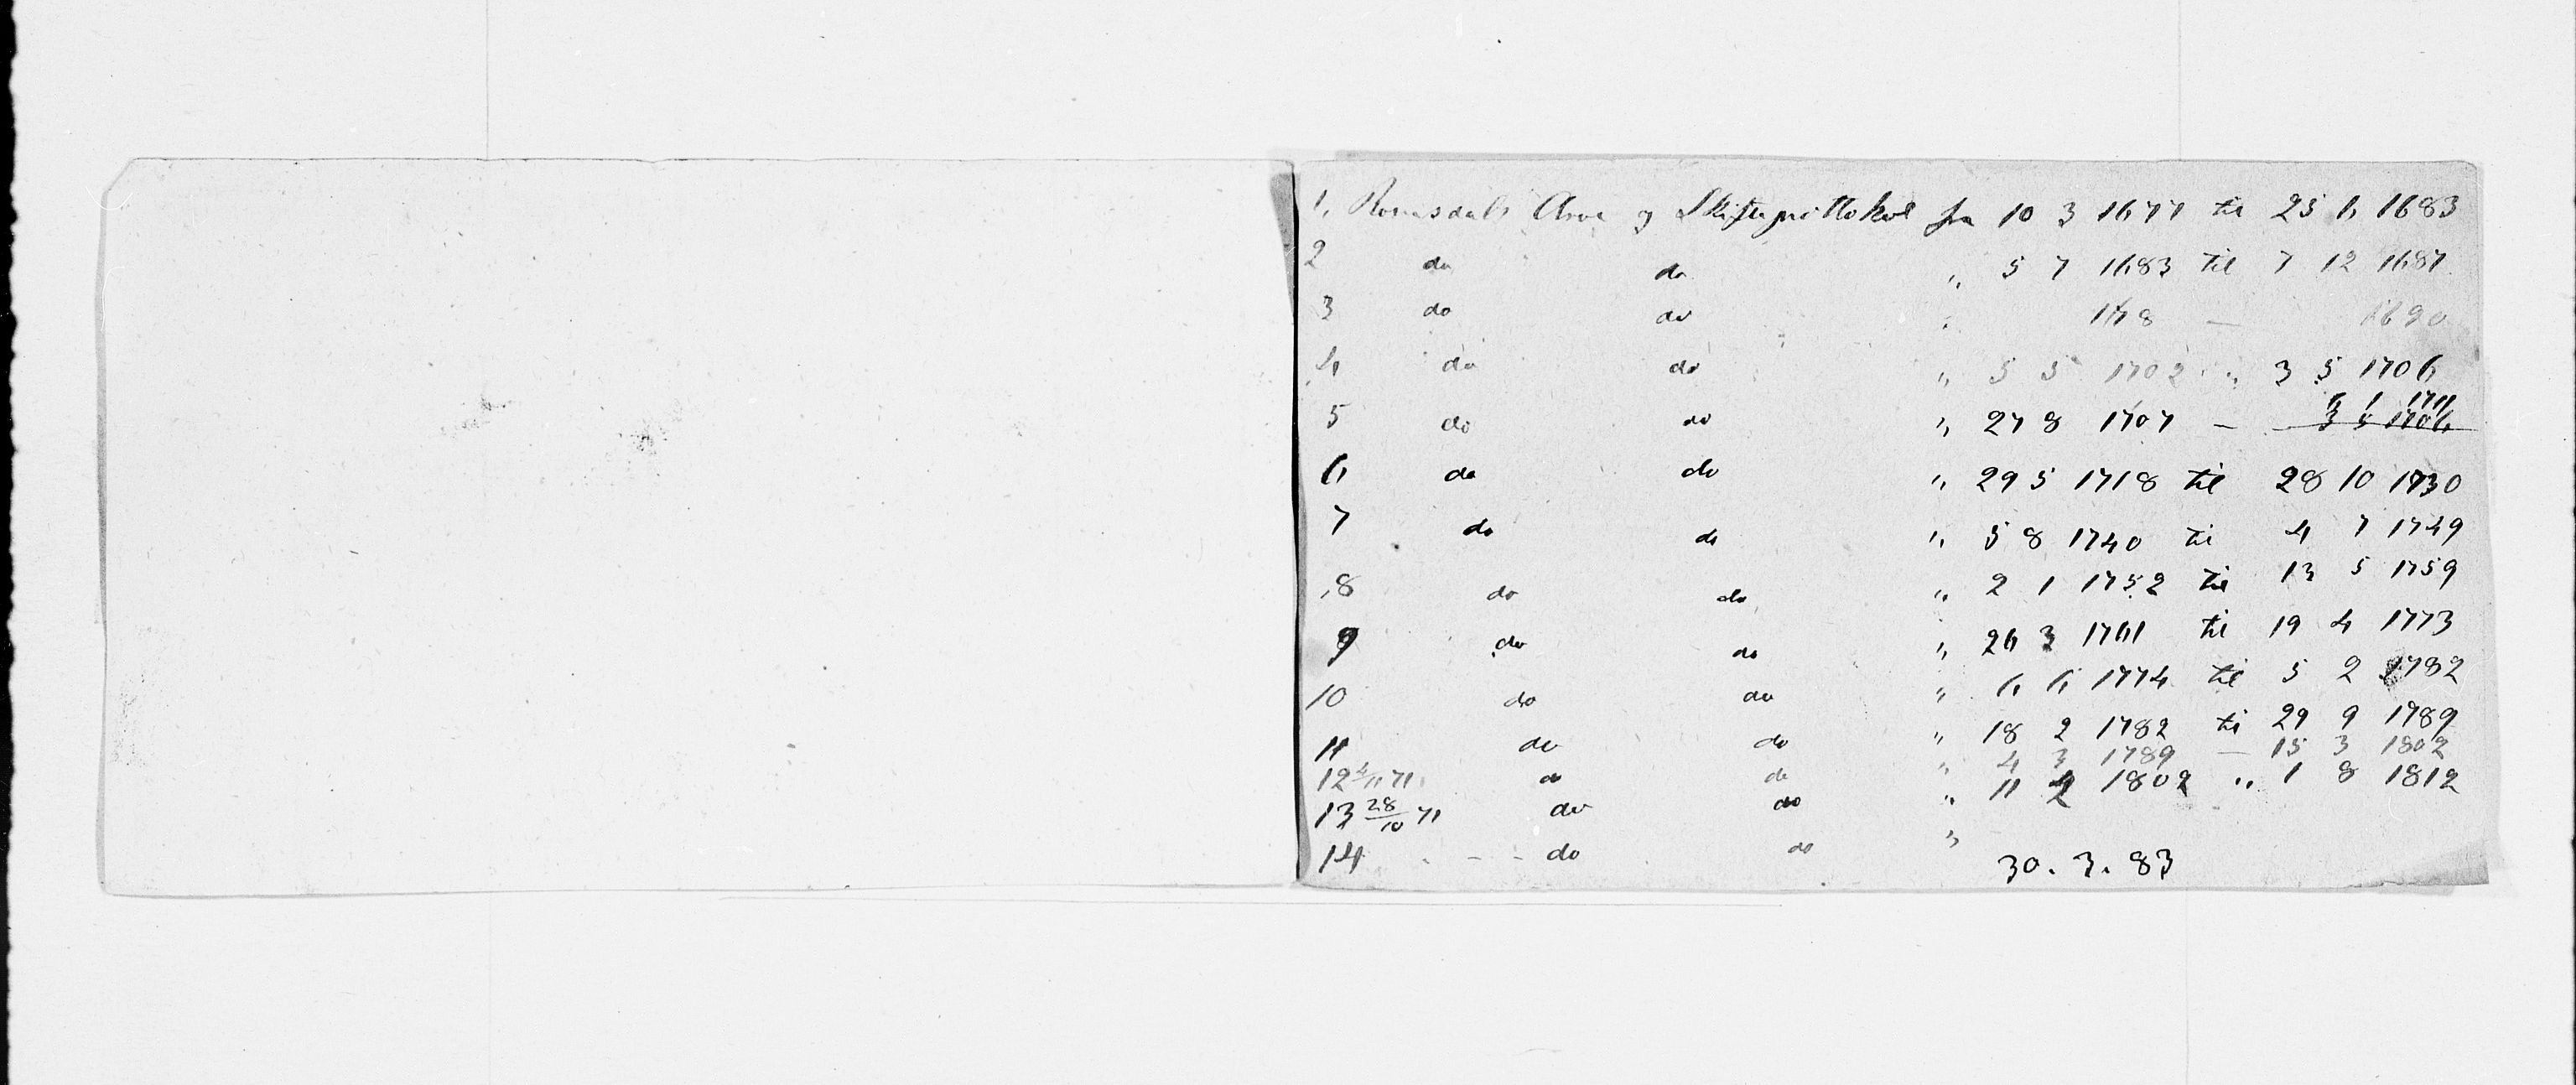 1. Romsdals Arve og Skifteprottokol fra 10 3 1677 til 25 6 1683
2 do do " 5 7 1683 til 7 12 1687
3 do do " 168 — 1690
4 do do " 5 5 1702 " 3 5 1706
6 1 1711
5 do do " 27 8 1707 — 3 5 1706
6 do do " 29 5 1718 til 28 10 1730
7 do do " 5 8 1740 til 4 7 1749
8 do do " 2 1 1752 til 13 5 1759
9 do do " 26 3 1761 til 19 4 1773
10 do do " 6 6 1774 til 5 2 1782
11 do do " 18 2 1782 til 29 9 1789
12 4/11 71 do do " 4 3 1789 — 15 3 1802
13 28/10 71 do do " 11 2 1802 " 1 8 1812
14 - - do do "
30. 3. 83